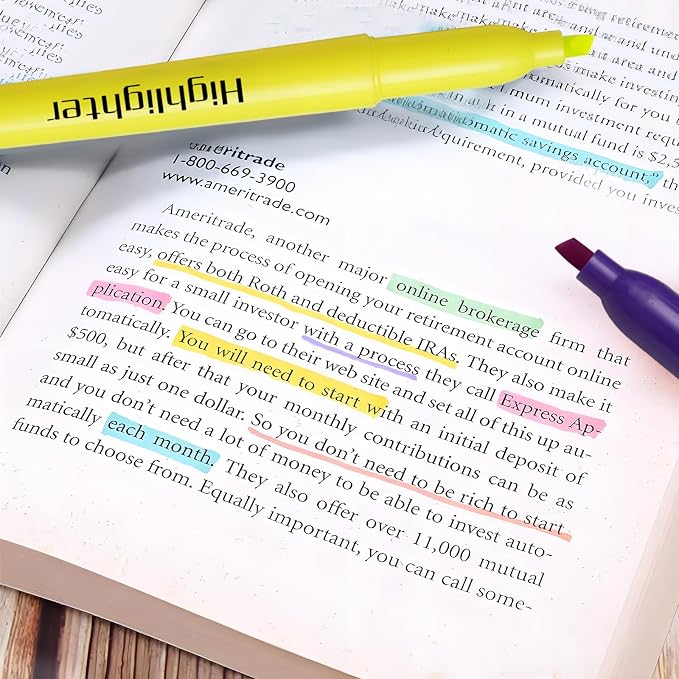 Highlighter
retireme
and und
make investing
area and
omatically for you
mum investment requ
in a mutual fund is $2,5
omatic savings account," th
quirement, provided you inves
ameritrade
1-800-669-3900
www.ameritrade.com
Ameritrade, another major online brokerage firm that
makes the process of opening your retirement account online
easy, offers both Roth and deductible IRAs. They also make it
easy for a small investor with a process they call Express Ap-
plication. You can go to their web site and set all of this up au-
tomatically. You will need to start with an initial deposit of
$500, but after that your monthly contributions can be as
small as just one dollar. So you don't need to be rich to start
and you don't need a lot of money to be able to invest auto-
matically each month. They also offer over 11,000 mutual
funds to choose from. Equally important, you can call some-